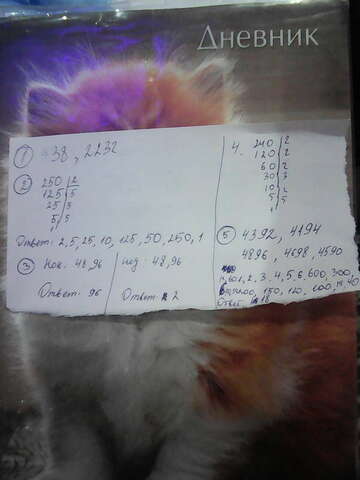 Дневник
① 38, 2232
② 250 | 2
125 | 5
25 | 5
5 | 5
1
Ответ: 2, 5, 25, 10, 125, 50, 250, 1
③ Нок: 48, 96
Ответ: 96
нод: 48, 96
Ответ: 2
4. 240 | 2
120 | 2
60 | 2
30 | 3
10 | 2
5 | 5
1
⑤ 4392, 4194
4896, 4698, 4590
1, 2, 3, 4, 5, 6, 600, 300,
150, 120, 100,
Ответ: 18